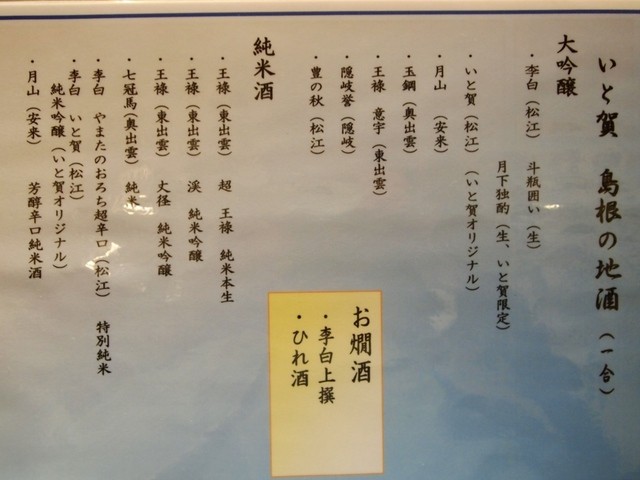 いと賀 島根の地酒（一合）
大吟醸
・李白（松江） 斗瓶囲い（生）
月下独酌（生、いと賀限定）
・いと賀（松江）（いと賀オリジナル）
・月山（安来）
・玉鋼（奥出雲）
・王祿 意宇（東出雲）
・隠岐誉（隠岐）
・豊の秋（松江）
純米酒
・王祿（東出雲） 超 王祿 純米本生
・王祿（東出雲） 渓 純米吟醸
・王祿（東出雲） 丈径 純米吟醸
・七冠馬（奥出雲） 純米
・李白 やまたのおろち超辛口（松江） 特別純米
・李白 いと賀（松江）
純米吟醸（いと賀オリジナル）
・月山（安来） 芳醇辛口純米酒
お燗酒
・李白上撰
・ひれ酒